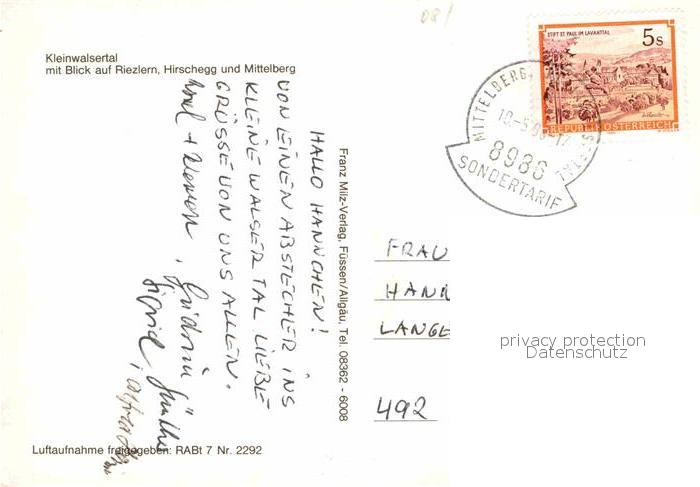 081
Kleinwalsertal
mit Blick auf Riezlern, Hirschegg und Mittelberg
HALLO HANNCHEN!
VON EINEN ABSTECHER INS
KLEINE WALSER TAL LIEBE
GRÜSSE VON UNS ALLEN.
Sigrid
Luftaufnahme freigegeben: RABt 7 Nr. 2292
Franz Milz-Verlag, Füssen/Allgäu, Tel. 08362 - 6008
STIFT ST. PAUL IM LAVANTTAL
5s
REPUBLIK ÖSTERREICH
MITTELBERG
8986
SONDERTARIF
FRAU
HANN
LANGE
492
privacy protection
Datenschutz